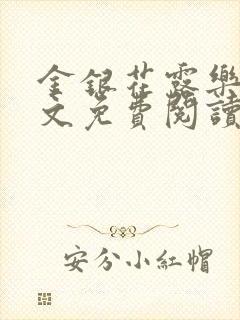 金銀花露樂
文免費閱讀
安分小紅帽